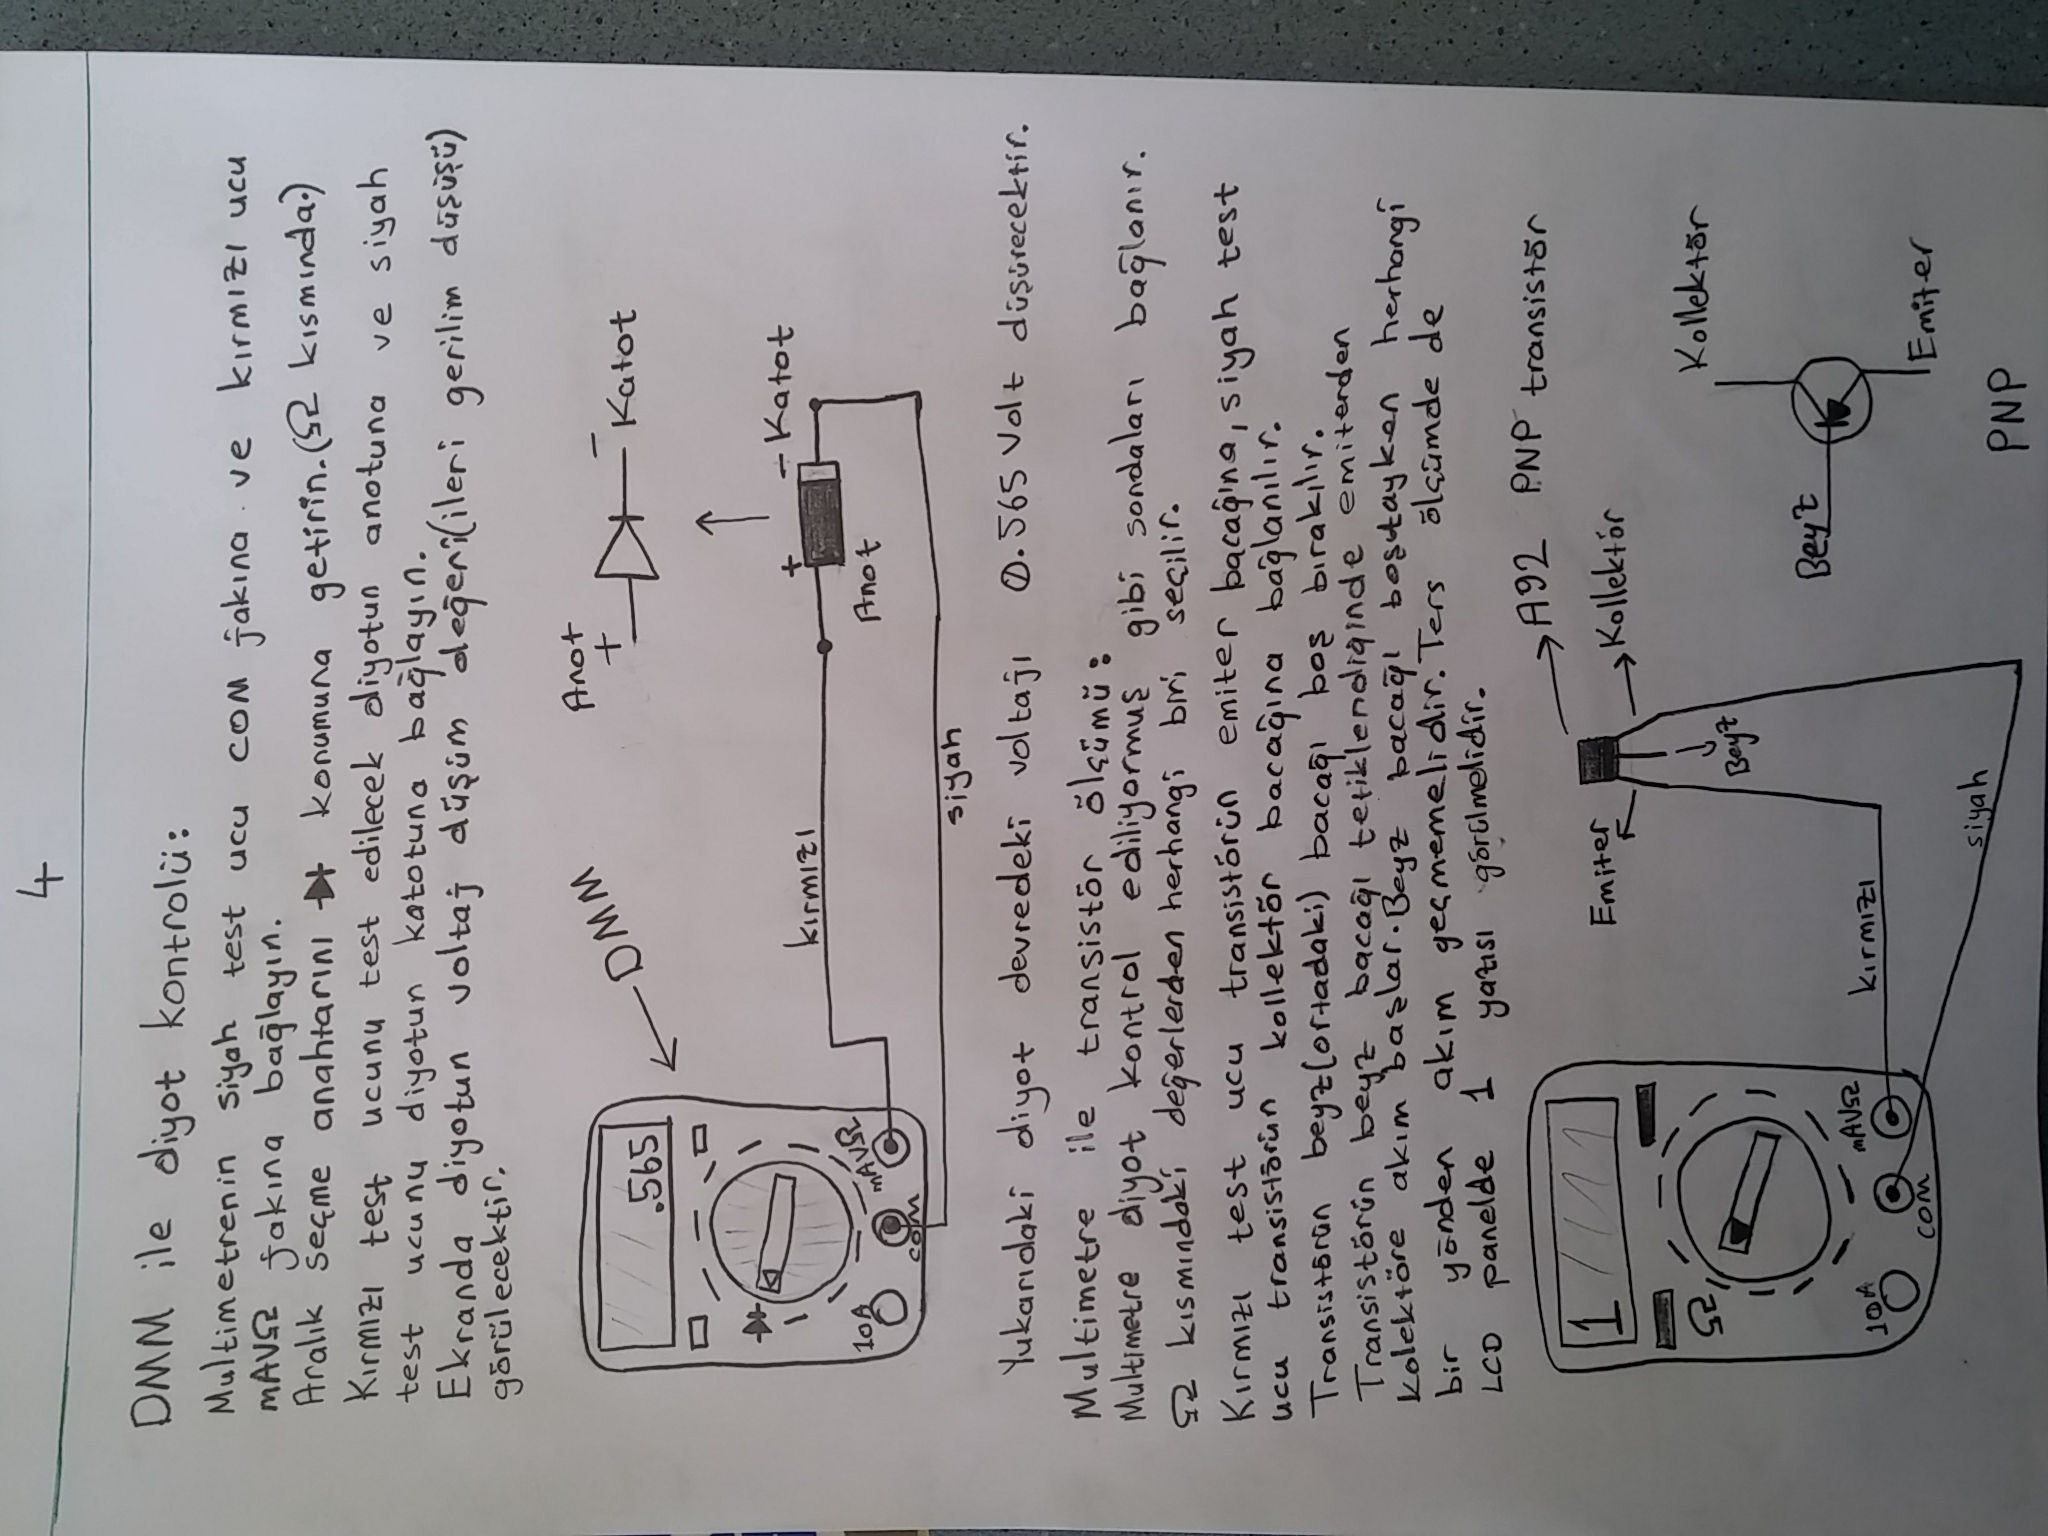 4
DMM ile diyot kontrolü:
Multimetrenin siyah test ucu COM jakına ve kırmızı ucu
mAVΩ jakına bağlayın.
Aralık seçme anahtarını konumuna getirin.(Ω kısmında.)
Kırmızı test ucunu test edilecek diyotun anotuna ve siyah
test ucunu diyotun katotuna bağlayın.
Ekranda diyotun voltaj düşüm değeri(ileri gerilim düşüşü)
görülecektir.
.565
DMM
Anot
+
-
Katot
10A
COM
mAVΩ
kırmızı
+
- Katot
Anot
siyah
Yukarıdaki diyot devredeki voltajı 0.565 Volt düşürecektir.
Multimetre ile transistör ölçümü:
Multimetre diyot kontrol ediliyormuş gibi sondaları bağlanır.
Ω kısmındaki değerlerden herhangi biri seçilir.
Kırmızı test ucu transistörün emiter bacağına, siyah test
ucu transistörün kollektör bacağına bağlanılır.
Transistörün beyz(ortadaki) bacağı boş bırakılır.
Transistörün beyz bacağı tetiklendiğinde emiterden
kolektöre akım başlar. Beyz bacağı boştayken herhangi
bir yönden akım geçmemelidir. Ters ölçümde de
LCD panelde 1 yazısı görülmelidir.
1
Ω
10A
COM
mAVΩ
A92 PNP transistör
Emiter
Kollektör
Beyz
kırmızı
siyah
Kollektör
Beyz
Emiter
PNP